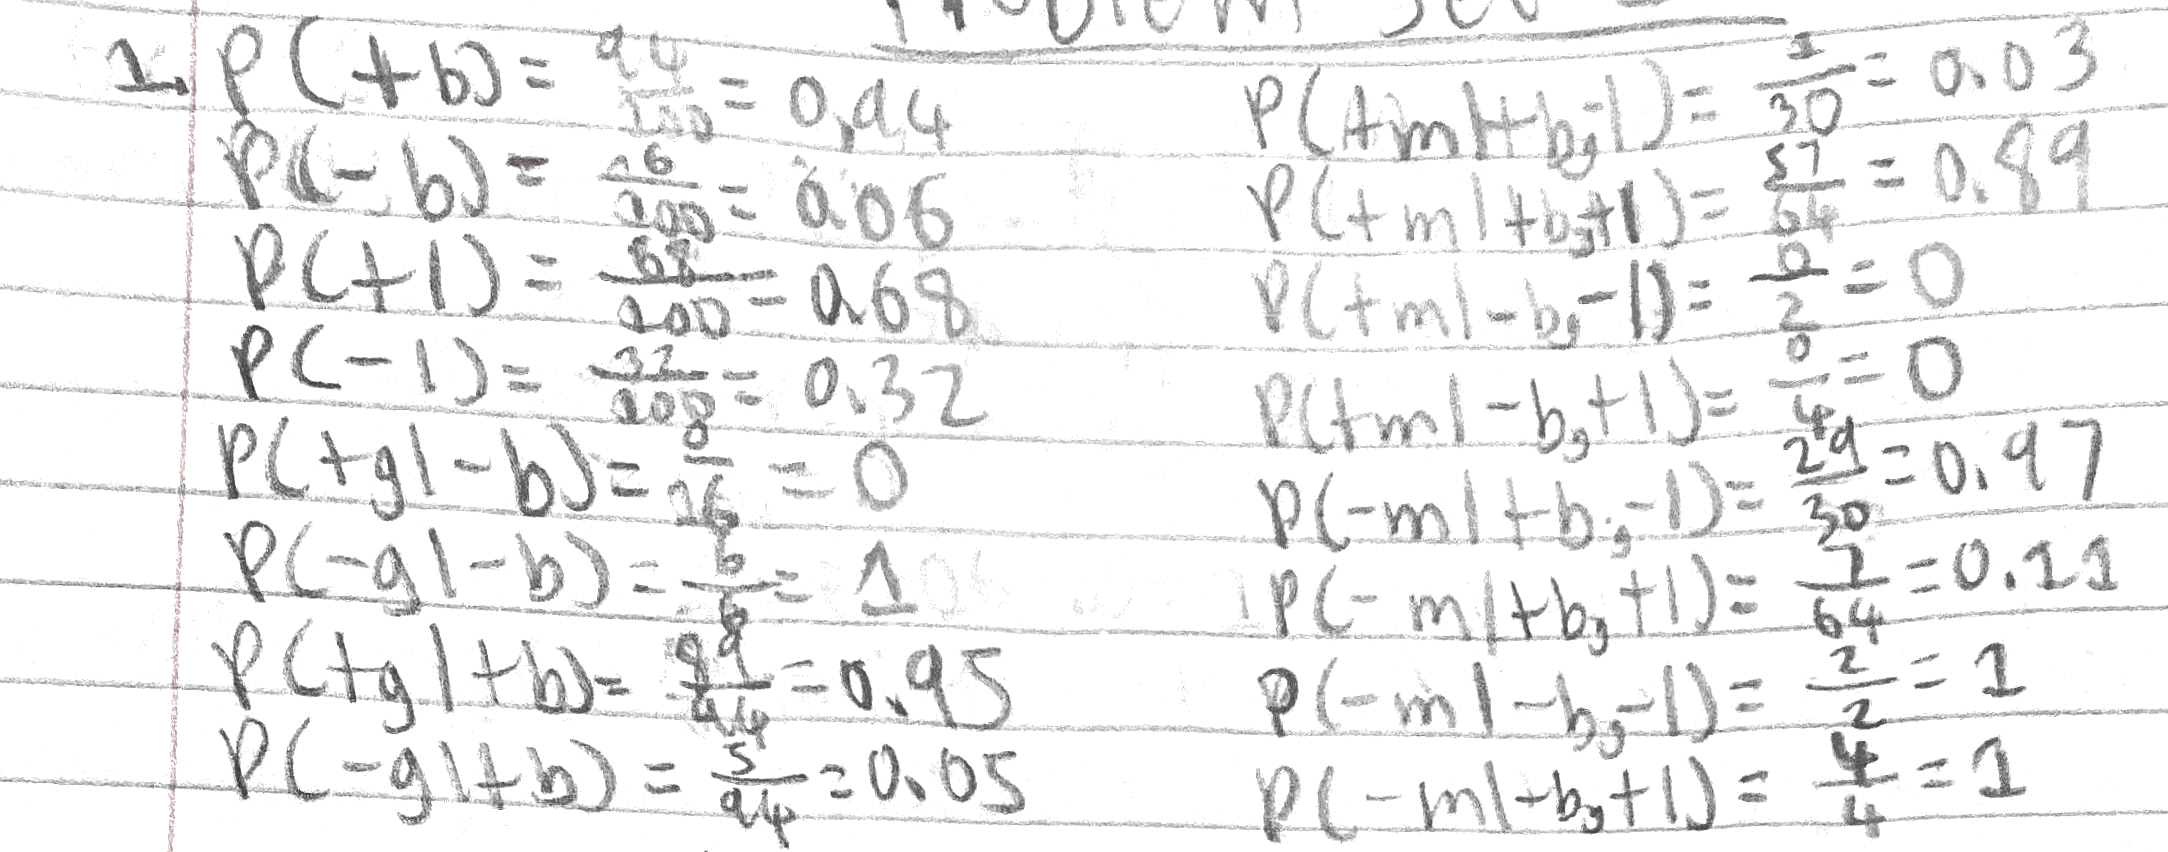 Problem Set
1. P(+b) = 94/100 = 0.94
P(-b) = 6/100 = 0.06
P(+l) = 68/100 = 0.68
P(-l) = 32/100 = 0.32
P(+g|-b) = 0/6 = 0
P(-g|-b) = 6/6 = 1
P(+g|+b) = 89/94 = 0.95
P(-g|+b) = 5/94 = 0.05
P(+m|+b,-l) = 1/30 = 0.03
P(+m|+b,+l) = 57/64 = 0.89
P(+m|-b,-l) = 0/2 = 0
P(+m|-b,+l) = 0/4 = 0
P(-m|+b,-l) = 29/30 = 0.97
P(-m|+b,+l) = 7/64 = 0.11
P(-m|-b,-l) = 2/2 = 1
P(-m|-b,+l) = 4/4 = 1